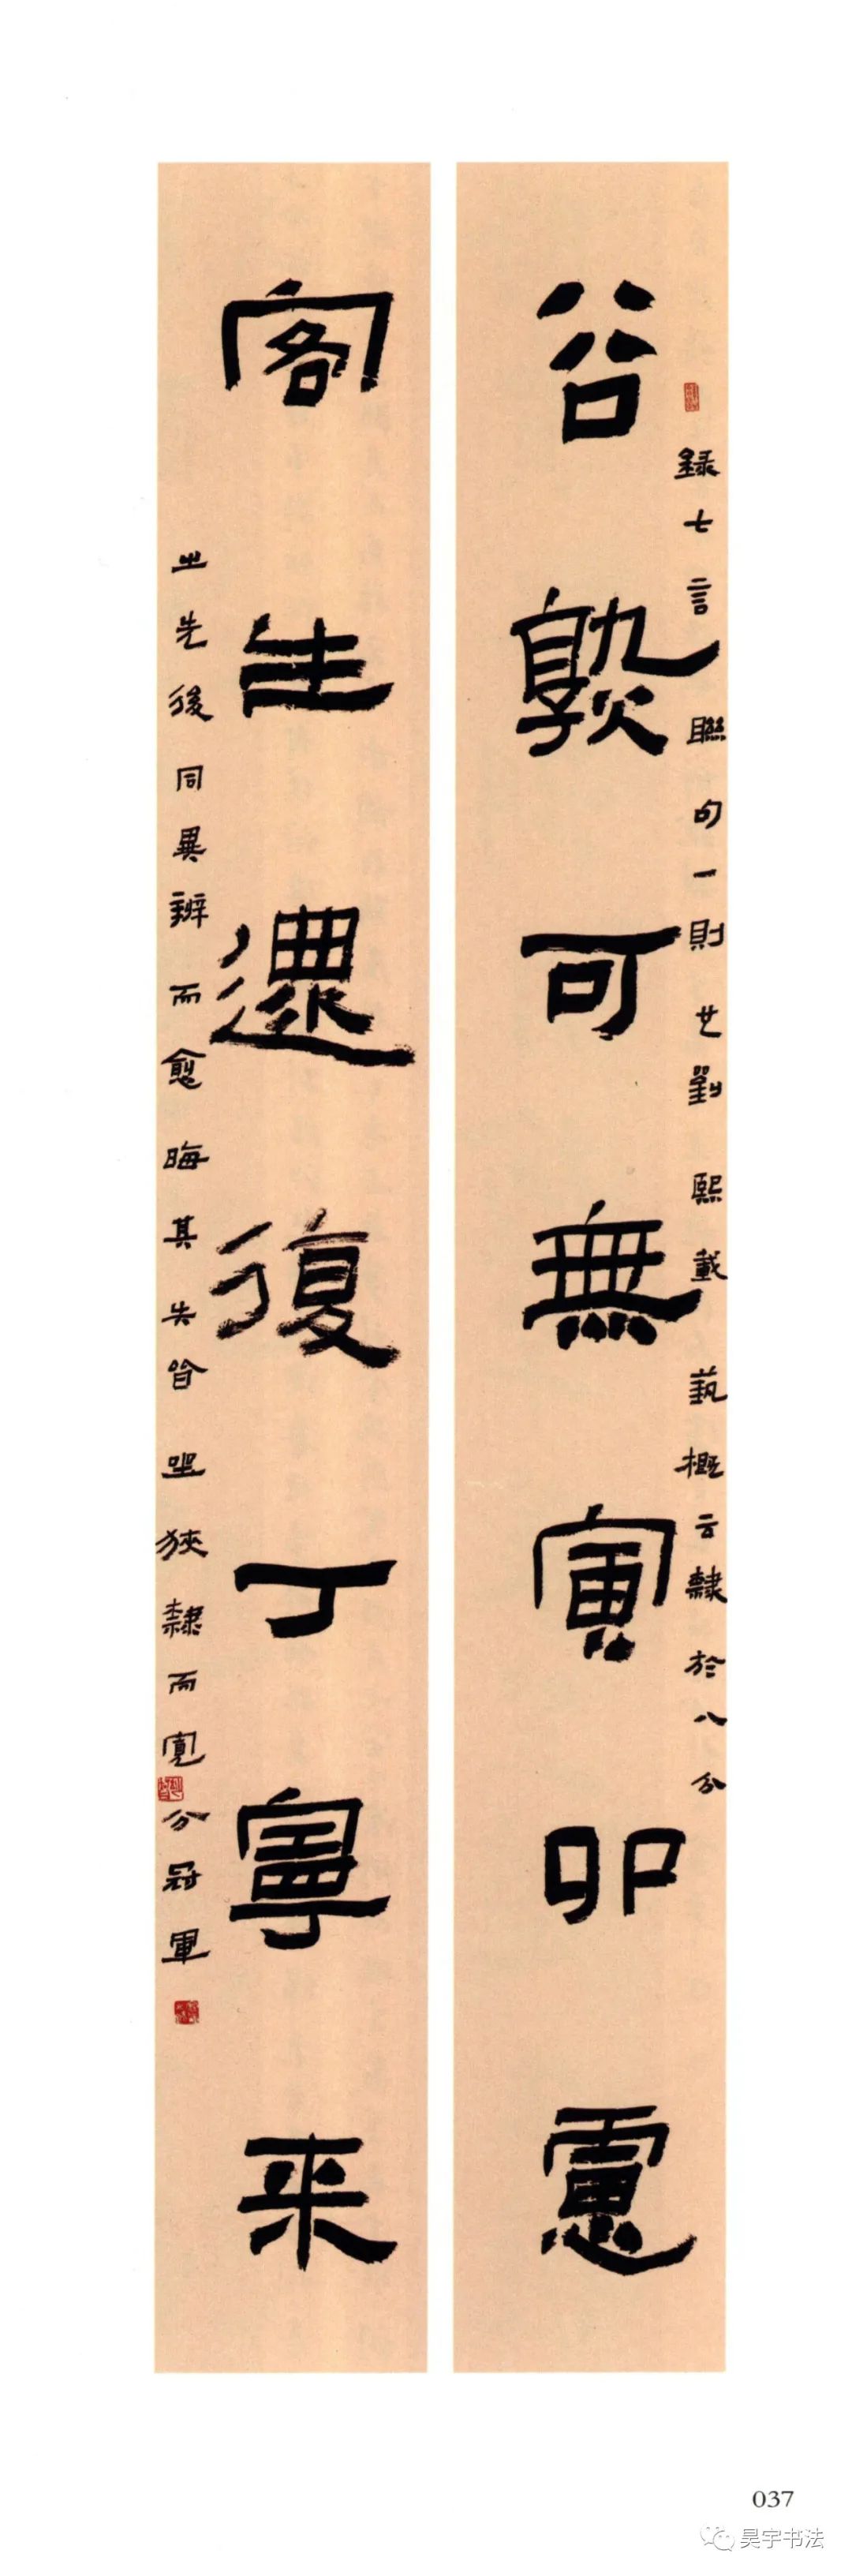 谷熟可無寅卯慮
錄七言聯句一則劉熙載藝概云隸於八分
客生還復丁寧來
之先後同異辨而愈晦其失皆坐狹隸而寬分冠軍
037
昊宇书法